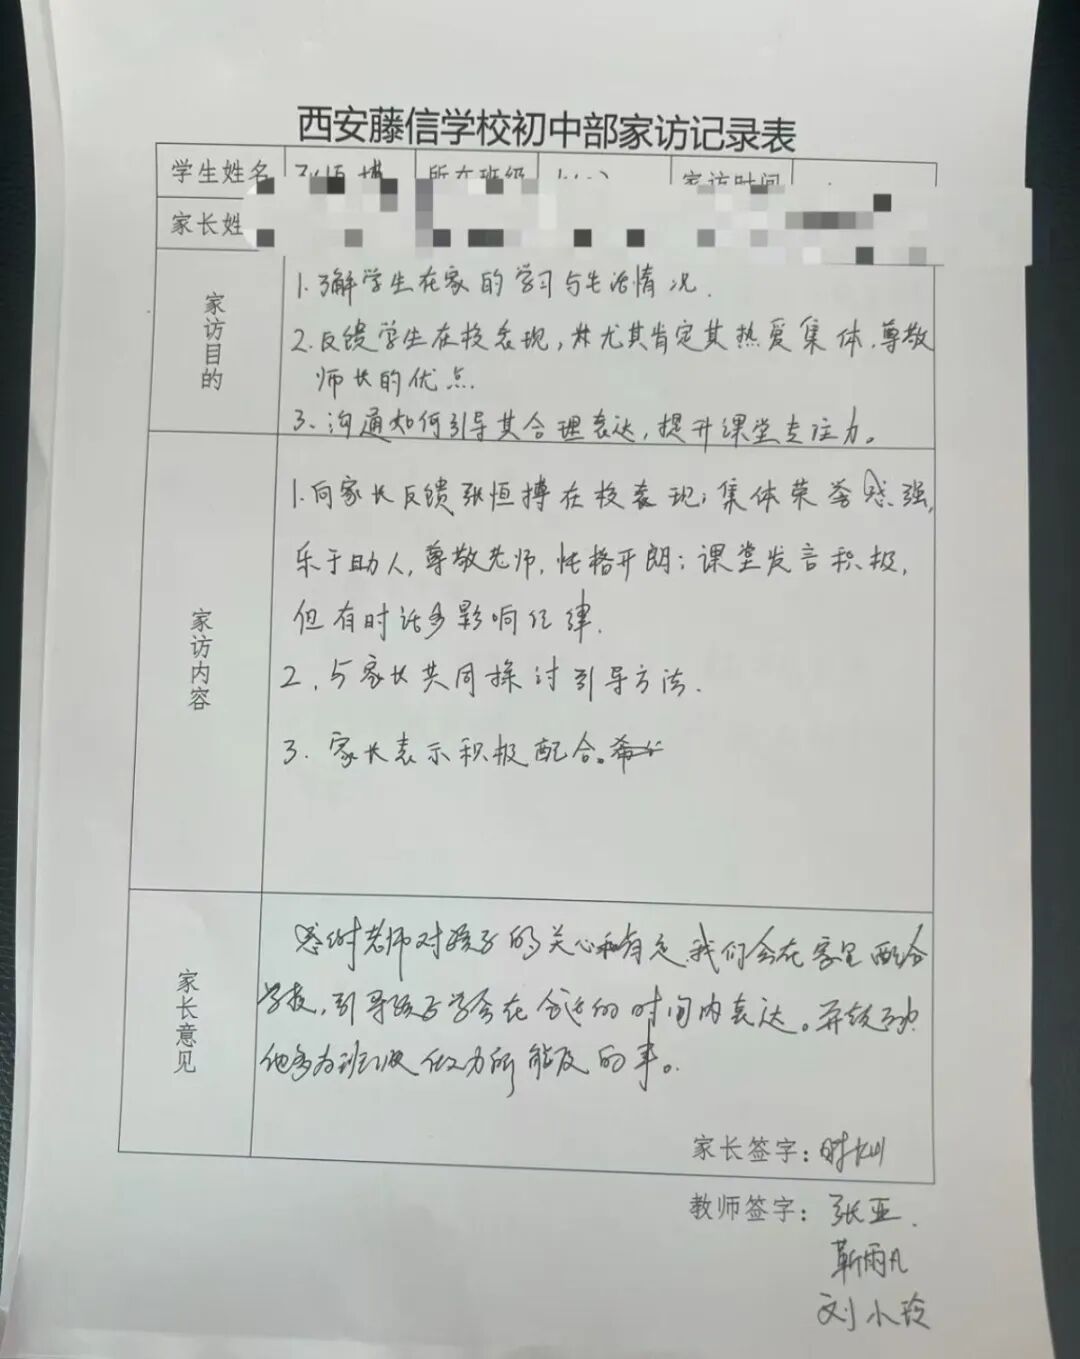 西安藤信学校初中部家访记录表
学生姓名 张恒博 所在班级 家访时间
家长姓
家访目的
1.了解学生在家的学习与生活情况.
2.反馈学生在校表现,尤其肯定其热爱集体.尊敬
师长的优点.
3、沟通如何引导其合理表达,提升课堂专注力。
家访内容
1.向家长反馈张恒搏在校表现;集体荣誉感强,
乐于助人,尊敬老师,性格开朗;课堂发言积极,
但有时话多影响纪律.
2.与家长共同探讨引导方法.
3.家长表示积极配合。
家长意见
感谢老师对孩子的关心和肯定.我们会在家里配合
学校,引导孩子学会在合适的时间内表达。并鼓励
他多为班级做力所能及的事。
家长签字:
教师签字:张亚.
靳雨凡
刘小玲